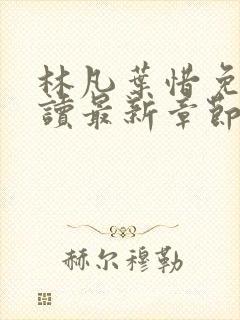 林凡葉惜免
讀最新章節
赫尔穆勒